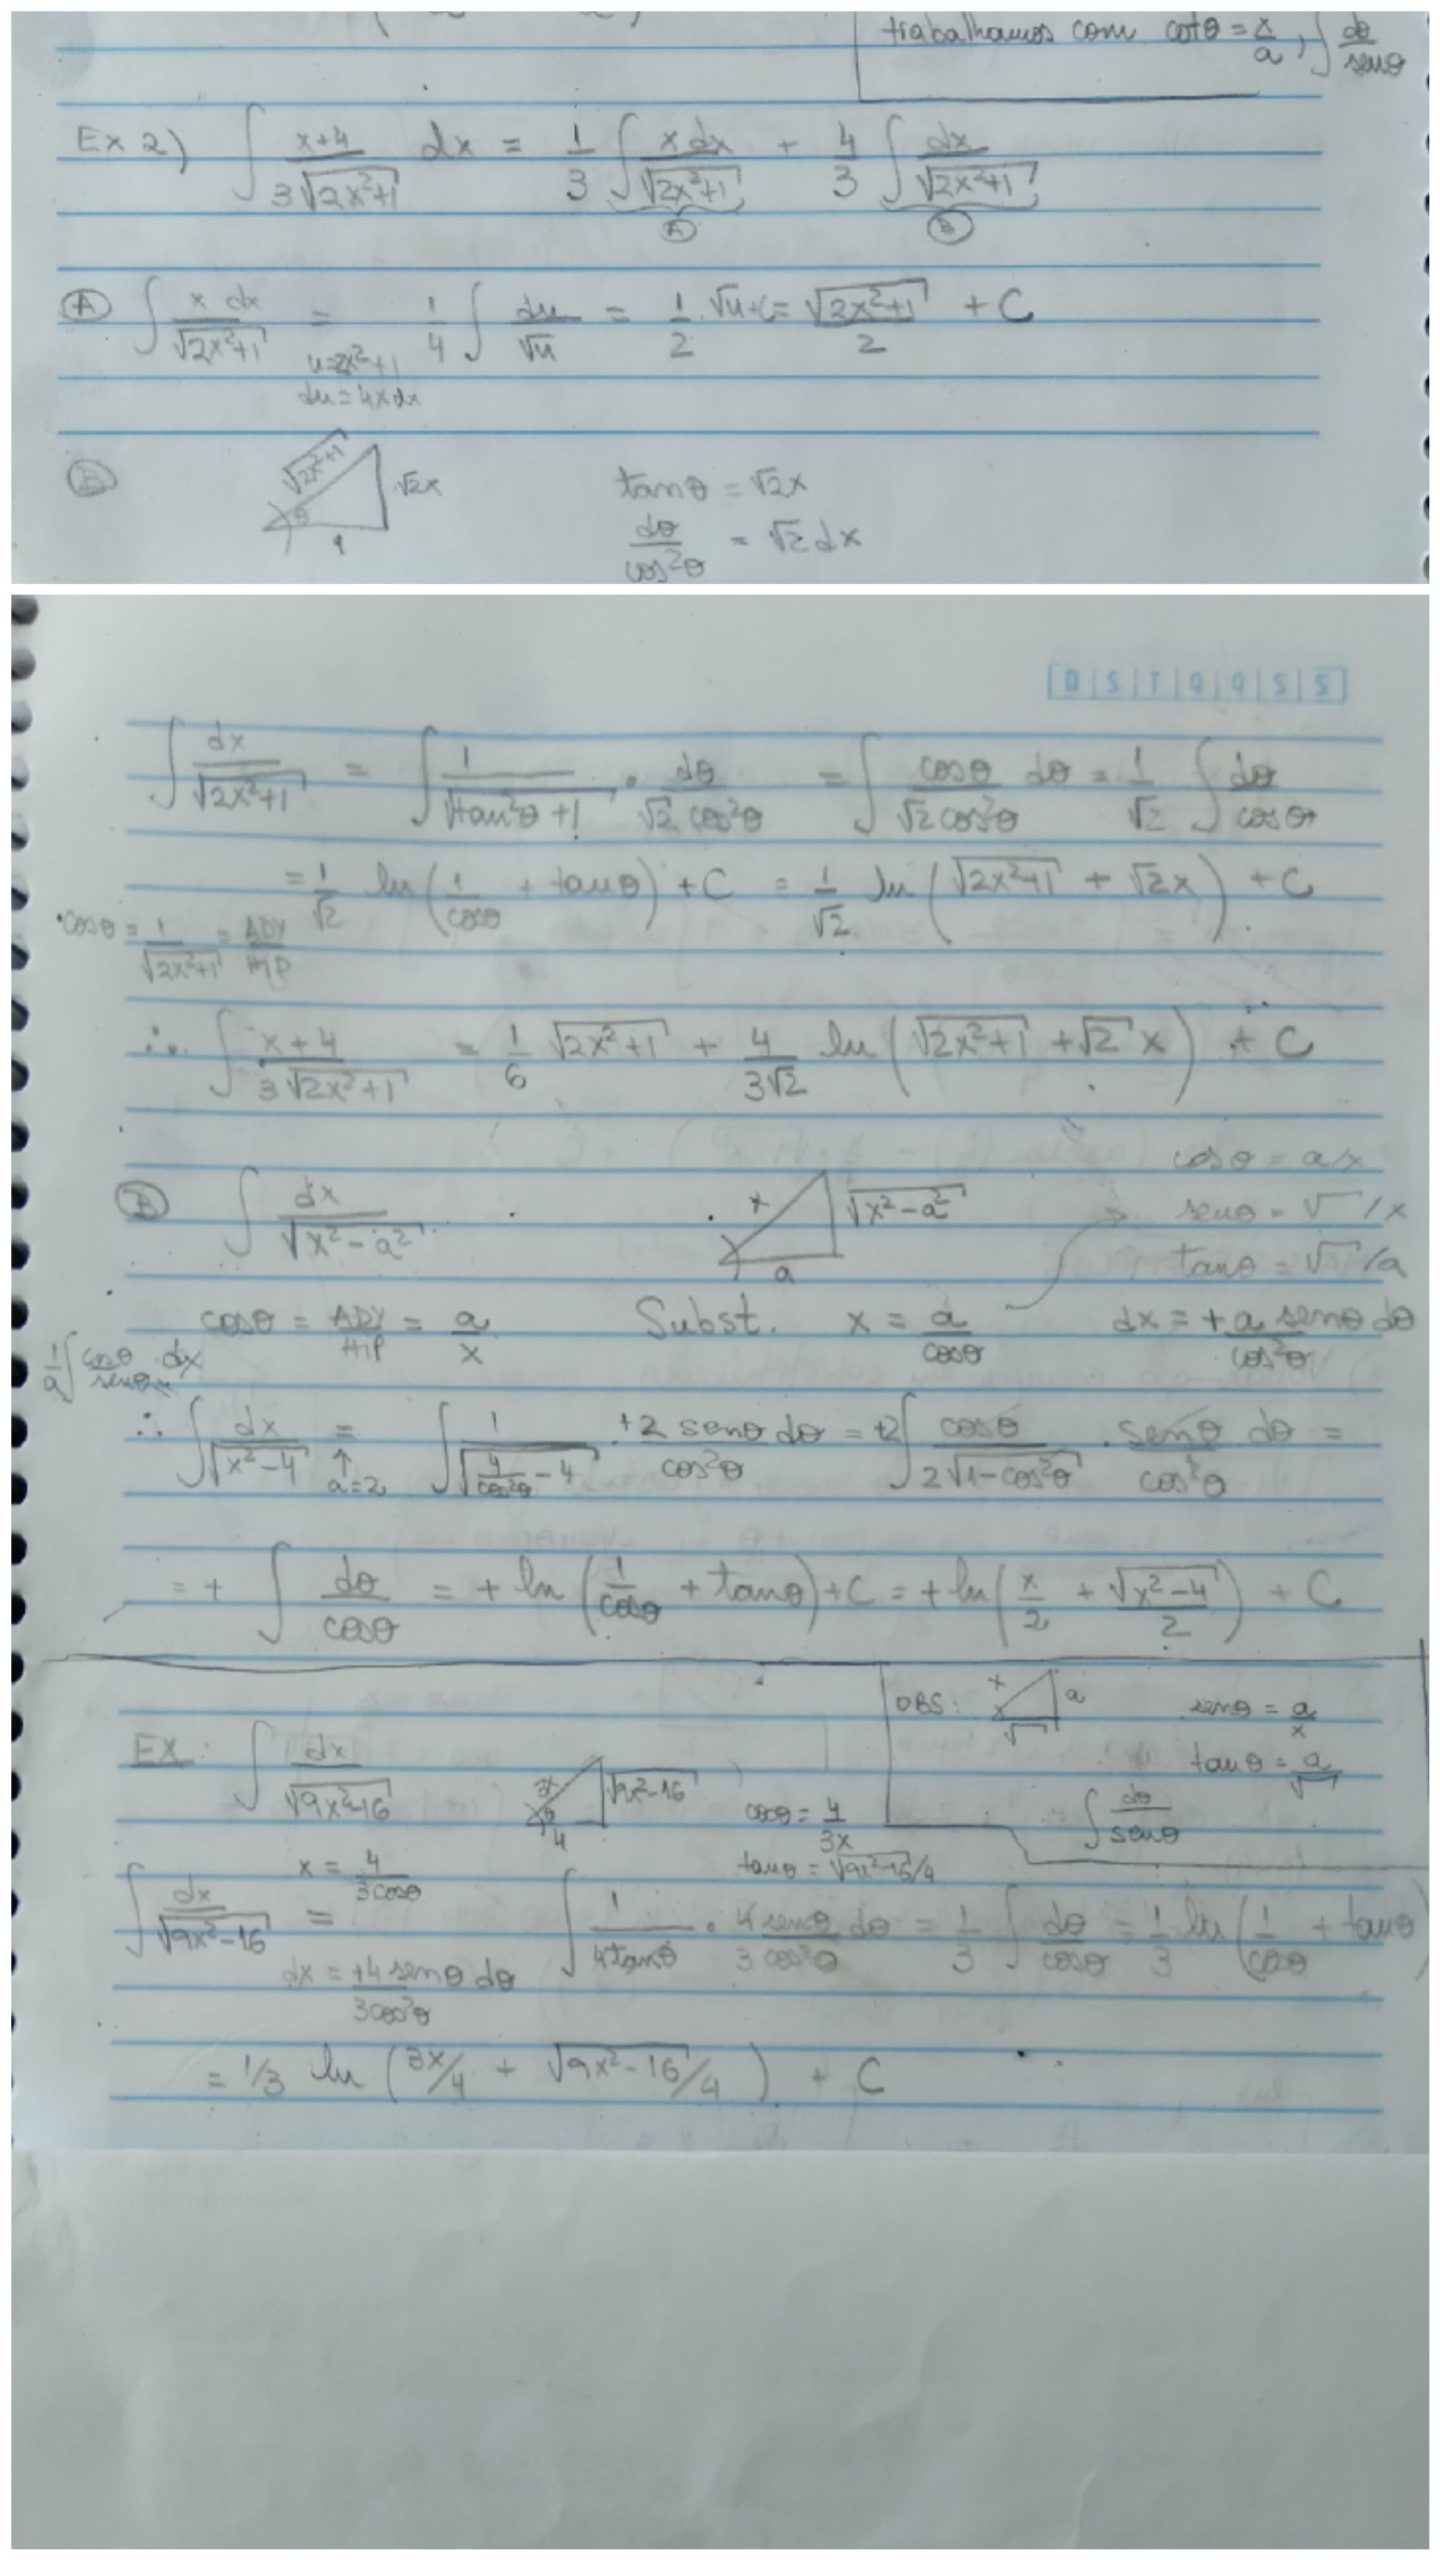 trabalhamos com cotθ = x/a, ∫ dθ/senθ
Ex 2) ∫ (x+4)/(3√(2x²+1)) dx = 1/3 ∫ x dx/√(2x²+1) + 4/3 ∫ dx/√(2x²+1)
Ⓐ Ⓑ
Ⓐ ∫ x dx/√(2x²+1) = 1/4 ∫ du/√u = 1/2 · √u + C = √(2x²+1)/2 + C
u=2x²+1
du=4xdx
Ⓑ √(2x²+1) θ √2x 1 tanθ = √2x
dθ/cos²θ = √2 dx
∫ dx/√(2x²+1) = ∫ 1/√(tan²θ+1) · dθ/(√2 cos²θ) = ∫ cosθ/(√2cos²θ) dθ = 1/√2 ∫ dθ/cosθ
= 1/√2 ln(1/cosθ + tanθ) + C = 1/√2 ln(√(2x²+1) + √2x) + C
•cosθ = 1/√(2x²+1) = ADY/HIP
∴ ∫ (x+4)/(3√(2x²+1)) = 1/6 √(2x²+1) + 4/(3√2) ln(√(2x²+1) + √2 x) + C
Ⓑ ∫ dx/√(x²-a²) x √(x²-a²) a
cosθ = a/x
senθ = √ /x
tanθ = √ /a
cosθ = ADY/HIP = a/x Subst. x = a/cosθ dx = + a senθ dθ/cos²θ
1/a ∫ cosθ/senθ dx
∴ ∫ dx/√(x²-4) = ∫ 1/√(4/cos²θ - 4) · +2 senθ dθ/cos²θ = +2∫ cosθ/(2√(1-cos²θ)) · senθ/cos²θ dθ =
↑
a=2
= + ∫ dθ/cosθ = + ln(1/cosθ + tanθ) + C = + ln(x/2 + √(x²-4)/2) + C
OBS: x a √ senθ = a/x
tanθ = a/√
∫ dθ/senθ
EX: ∫ dx/√(9x²-16) 3x θ 4 √(9x²-16) cosθ = 4/3x
tanθ = √(9x²-16)/4
x = 4/3cosθ
∫ dx/√(9x²-16) = ∫ 1/4tanθ · 4 senθ/3 cos²θ dθ = 1/3 ∫ dθ/cosθ = 1/3 ln(1/cosθ + tanθ
dx = +4 senθ dθ/3cos²θ
= 1/3 ln (3x/4 + √(9x²-16)/4) + C